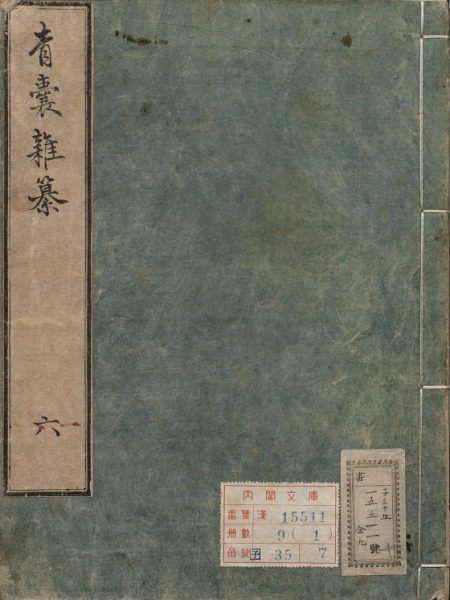 青囊雜纂
六
內閣文庫
番號 漢 15511
冊數 9(1)
函號 子 35 7
書
子三十五
一五五一一號
全九